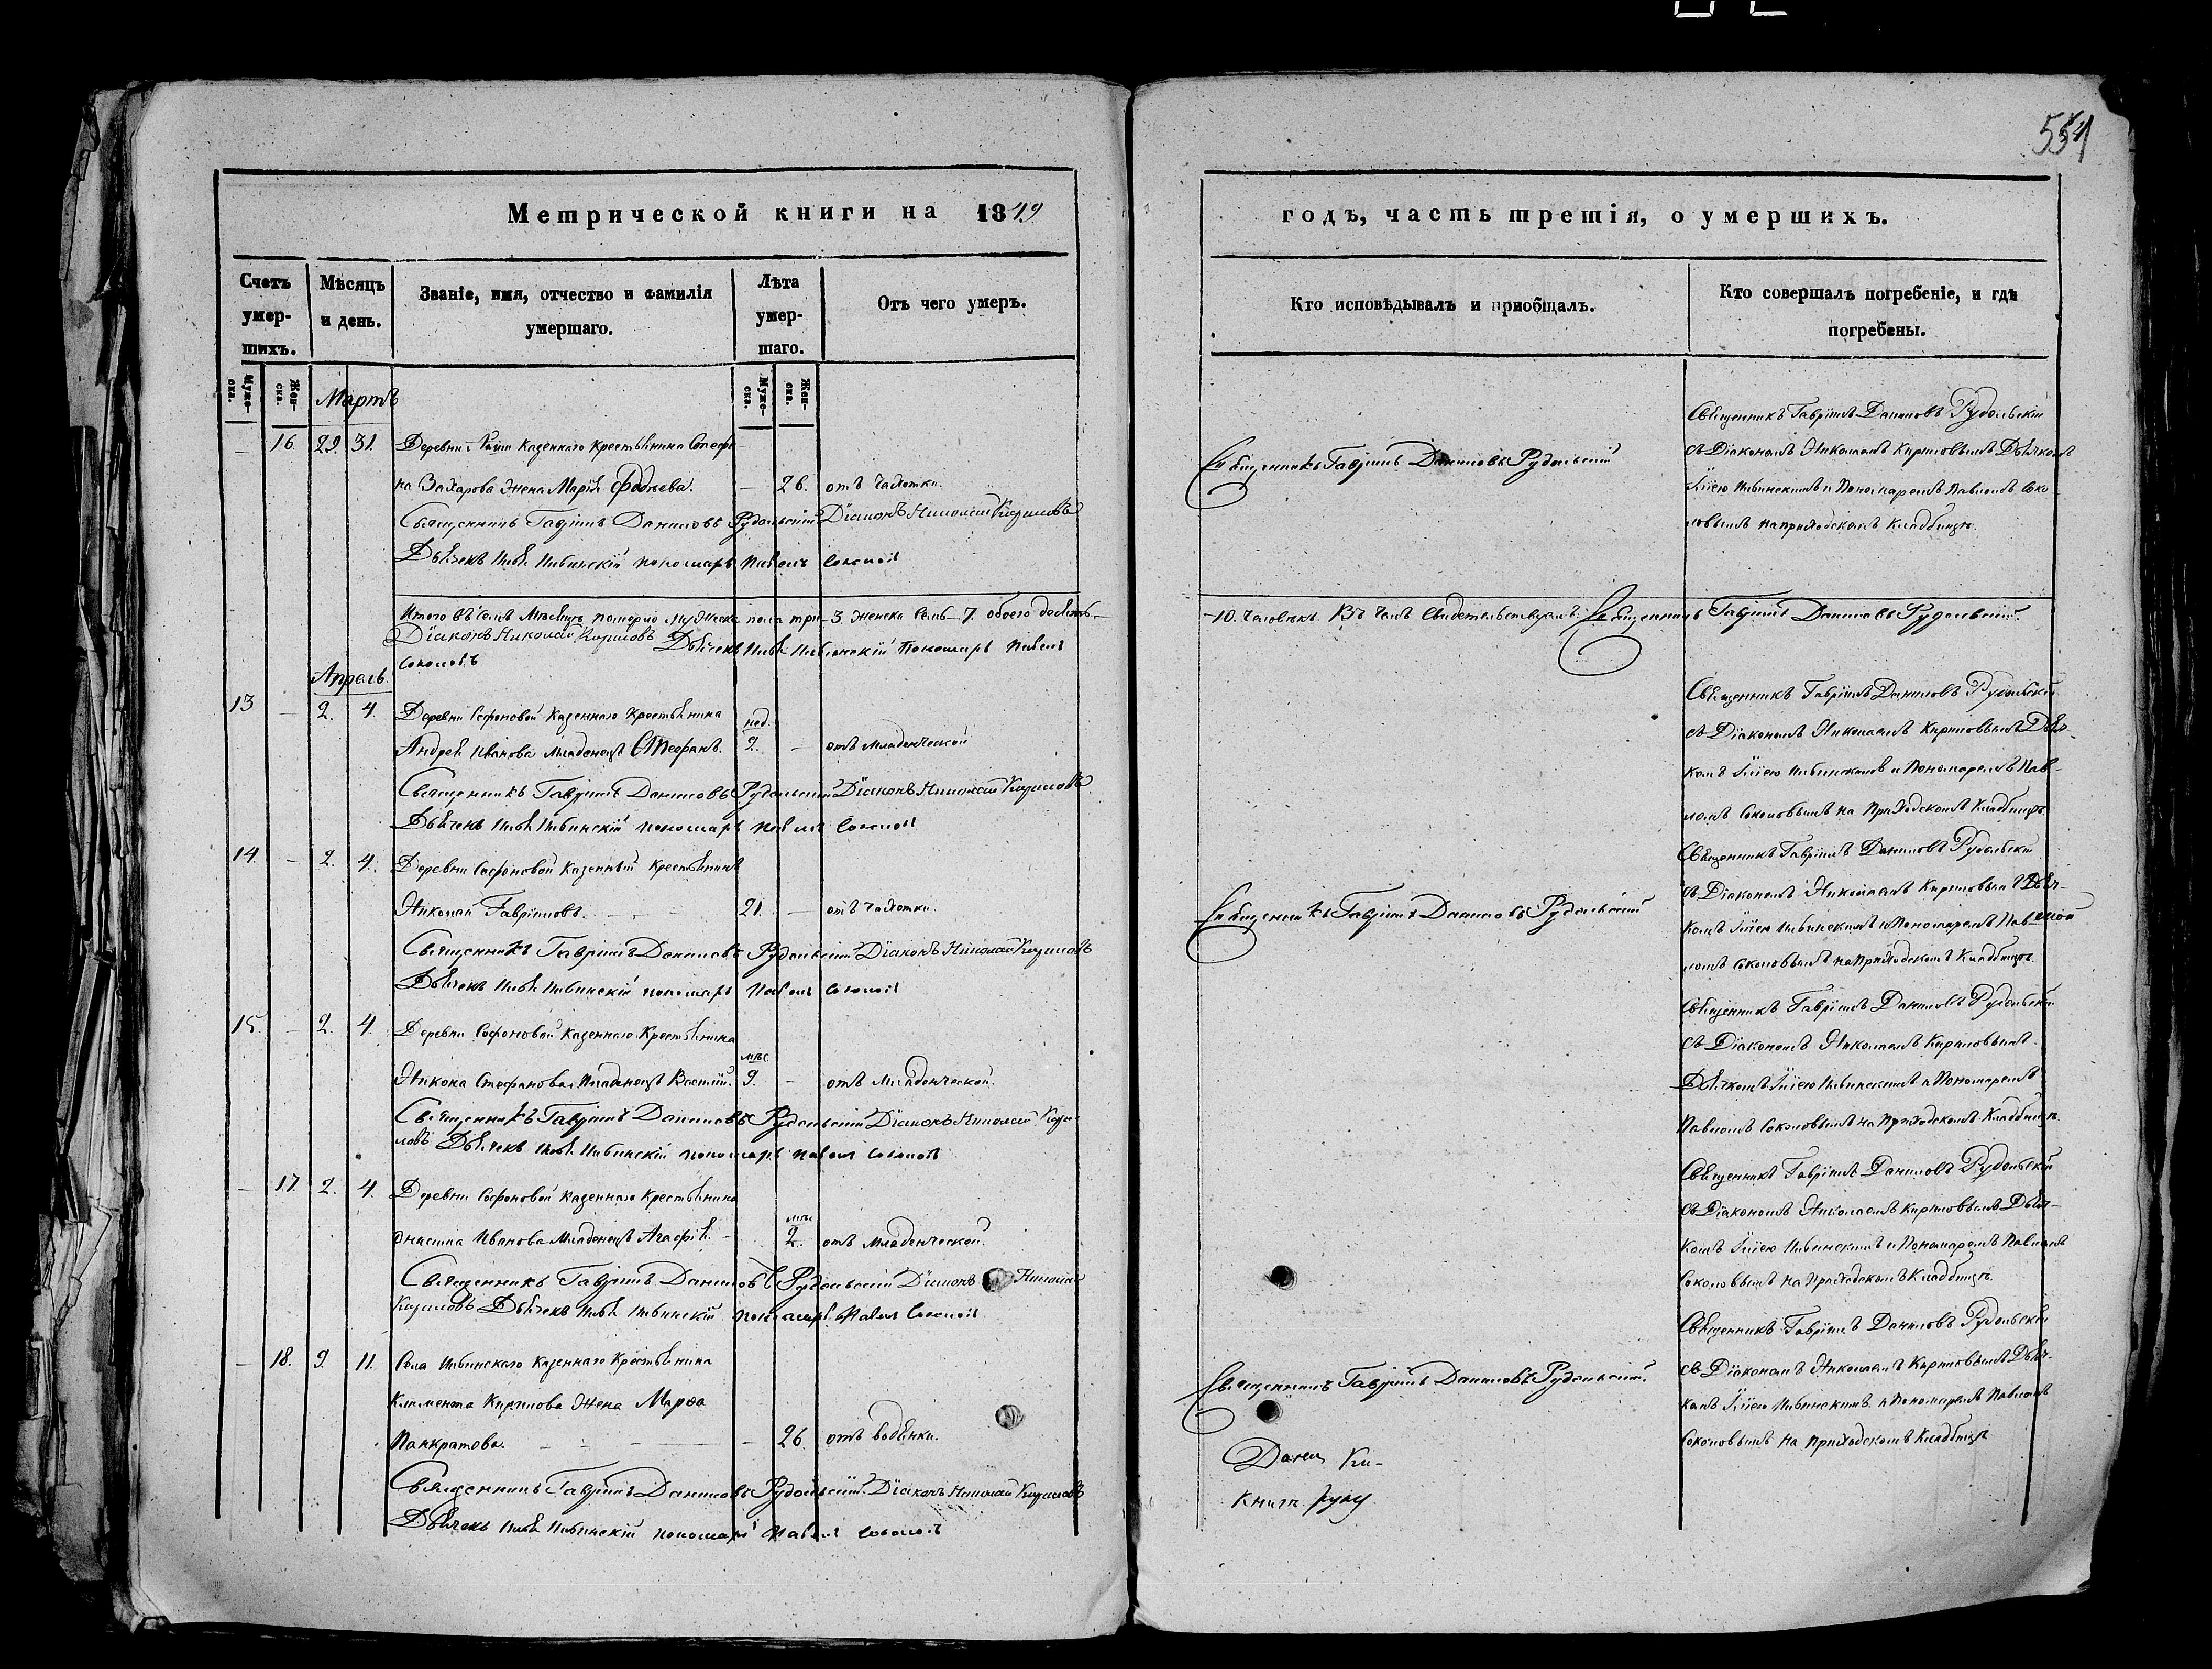 554
Метрической книги на 1849
годъ, часть третія, о умершихъ.
Счетъ умер-шихъ.
Мѣсяцъ и день.
Званіе, имя, отчество и фамилія умершаго.
Лѣта умер-шаго.
Отъ чего умеръ.
Кто исповѣдывалъ и пріобщалъ.
Кто совершалъ погребеніе, и гдѣ погребены.
Муже-ска.
Жен-ска.
Муже-ска.
Жен-ска.
Мартъ
— 16. 29. 31. Деревни казеннаго крестьянина Стефа
на Захарова жена Марія Фадѣева. — 26. отъ чахотки.
Священникъ Гавріилъ Даниловъ Рудольскій Діаконъ Николай Кириловъ
Дьячекъ Илья Ильинскій пономарь Павелъ Соколовъ
Священникъ Гавріилъ Даниловъ Рудольскій
Священникъ Гавріилъ Даниловъ Рудольскій
съ Діакономъ Николаемъ Кириловымъ Дьячкомъ
Іліею Ильинскимъ и Пономаремъ Павломъ Соко
ловымъ на приходскомъ кладбищѣ.
Итого въ семъ Мѣсяцѣ померло мужеска пола три — 3. женска семь — 7. обоего десять —
— 10. человѣкъ. Въ чемъ свидѣтельствуемъ: Священникъ Гавріилъ Даниловъ Рудольскій.
Діаконъ Николай Кириловъ Дьячекъ Илья Ильинскій Пономарь Павелъ
Соколовъ
Апрель.
13 — 2. 4. Деревни Софоновой казеннаго крестьянина
Андрея Иванова младенецъ Стефанъ. нед. 2. — отъ младенческой
Священникъ Гавріилъ Даниловъ Рудольскій Діаконъ Николай Кириловъ
Дьячекъ Илья Ильинскій пономарь Павелъ Соколовъ
Священникъ Гавріилъ Даниловъ Рудольскій
съ Діакономъ Николаемъ Кириловымъ Дьяч-
комъ Іліею Ильинскимъ и Пономаремъ Пав-
ломъ Соколовымъ на Приходскомъ Кладбищѣ.
14. — 2. 4. Деревни Софоновой казенный крестьянинъ
Николай Гавріиловъ. 21. — отъ чахотки.
Священникъ Гавріилъ Даниловъ Рудольскій Діаконъ Николай Кириловъ
Дьячекъ Илья Ильинскій пономарь Павелъ Соколовъ
Священникъ Гавріилъ Даниловъ Рудольскій
Священникъ Гавріилъ Даниловъ Рудольскій
съ Діакономъ Николаемъ Кириловымъ Дьяч-
комъ Іліею Ильинскимъ и Пономаремъ Пав-
ломъ Соколовымъ на Приходскомъ Кладбищѣ.
15. — 2. 4. Деревни Софоновой казеннаго крестьянина
Никона Стефанова младенецъ Василій. мѣс. 9. — отъ младенческой.
Священникъ Гавріилъ Даниловъ Рудольскій Діаконъ Николай Кири-
ловъ Дьячекъ Илья Ильинскій пономарь Павелъ Соколовъ
Священникъ Гавріилъ Даниловъ Рудольскій
съ Діакономъ Николаемъ Кириловымъ
Дьячкомъ Іліею Ильинскимъ и Пономаремъ
Павломъ Соколовымъ на Приходскомъ Кладбищѣ.
— 17. 2. 4. Деревни Софоновой казеннаго крестьянина
Онисима Иванова младенецъ Агафія. мѣс. 2. отъ младенческой.
Священникъ Гавріилъ Даниловъ Рудольскій Діаконъ Николай
Кириловъ Дьячекъ Илья Ильинскій пономарь Павелъ Соколовъ
Священникъ Гавріилъ Даниловъ Рудольскій
съ Діакономъ Николаемъ Кириловымъ Дьяч-
комъ Іліею Ильинскимъ и Пономаремъ Павломъ
Соколовымъ на Приходскомъ Кладбищѣ.
— 18. 9. 11. Села Ильинскаго казеннаго крестьянина
Климента Кирилова жена Марѳа
Панкратова. — 26. отъ водянки.
Священникъ Гавріилъ Даниловъ Рудольскій. Діаконъ Николай Кириловъ
Дьячекъ Илья Ильинскій пономарь Павелъ Соколовъ
Священникъ Гавріилъ Даниловъ Рудольскій.
Священникъ Гавріилъ Даниловъ Рудольскій
съ Діакономъ Николаемъ Кириловымъ Дьяч-
комъ Іліею Ильинскимъ и Пономаремъ Павломъ
Соколовымъ на Приходскомъ Кладбищѣ